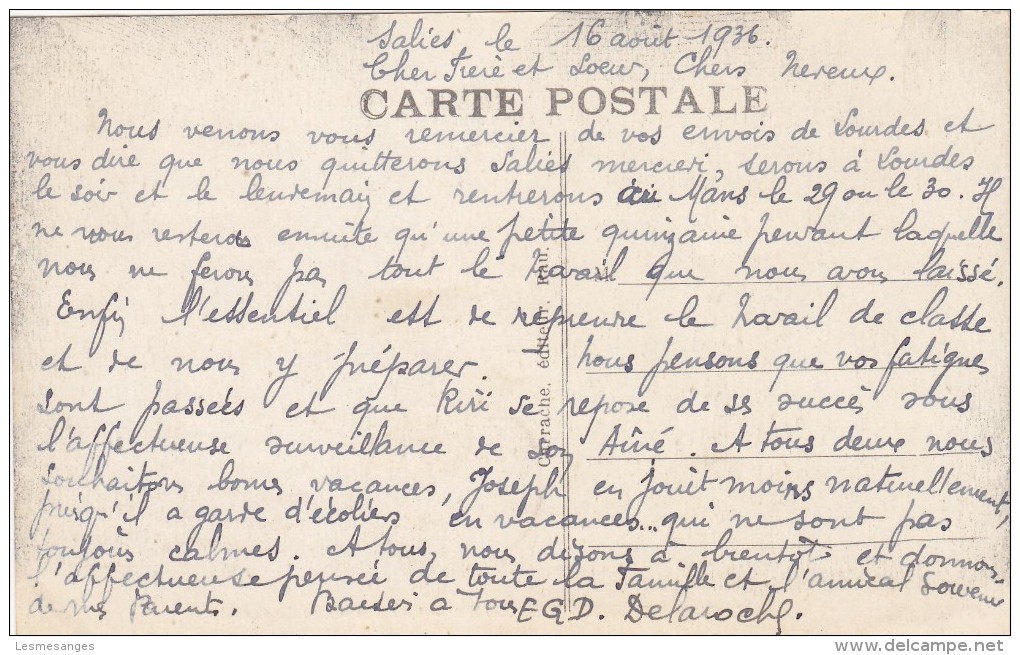 Salies le 16 août 1936.
Cher Frère et Soeur, Chers Neveux.
CARTE POSTALE
Nous venons vous remercier de vos envois de Lourdes et
vous dire que nous quitterons Salies mercredi, serons à Lourdes
le soir et le lendemain et rentrerons au Mans le 29 ou le 30. Il
ne nous restera ensuite qu'une petite quinzaine pendant laquelle
nous ne ferons pas tout le travail que nous avons laissé.
Enfin l'essentiel est de reprendre le travail de classe
et de nous y préparer. Nous pensons que vos fatigues
sont passées et que Riri se repose de ses succès sous
l'affectueuse surveillance de son Aîné. A tous deux nous
souhaitons bonnes vacances, Joseph en jouit moins naturellement,
puisqu'il a garde d'écoliers en vacances... qui ne sont pas
toujours calmes. A tous, nous disons à bientôt et donnons
l'affectueuse pensée de toute la Famille et l'amical Souvenir
de mes Parents. Baisers à tous E G D. Delaroche.
Carrache, éditeur, Pau.
Lesmesanges
www.delcampe.net